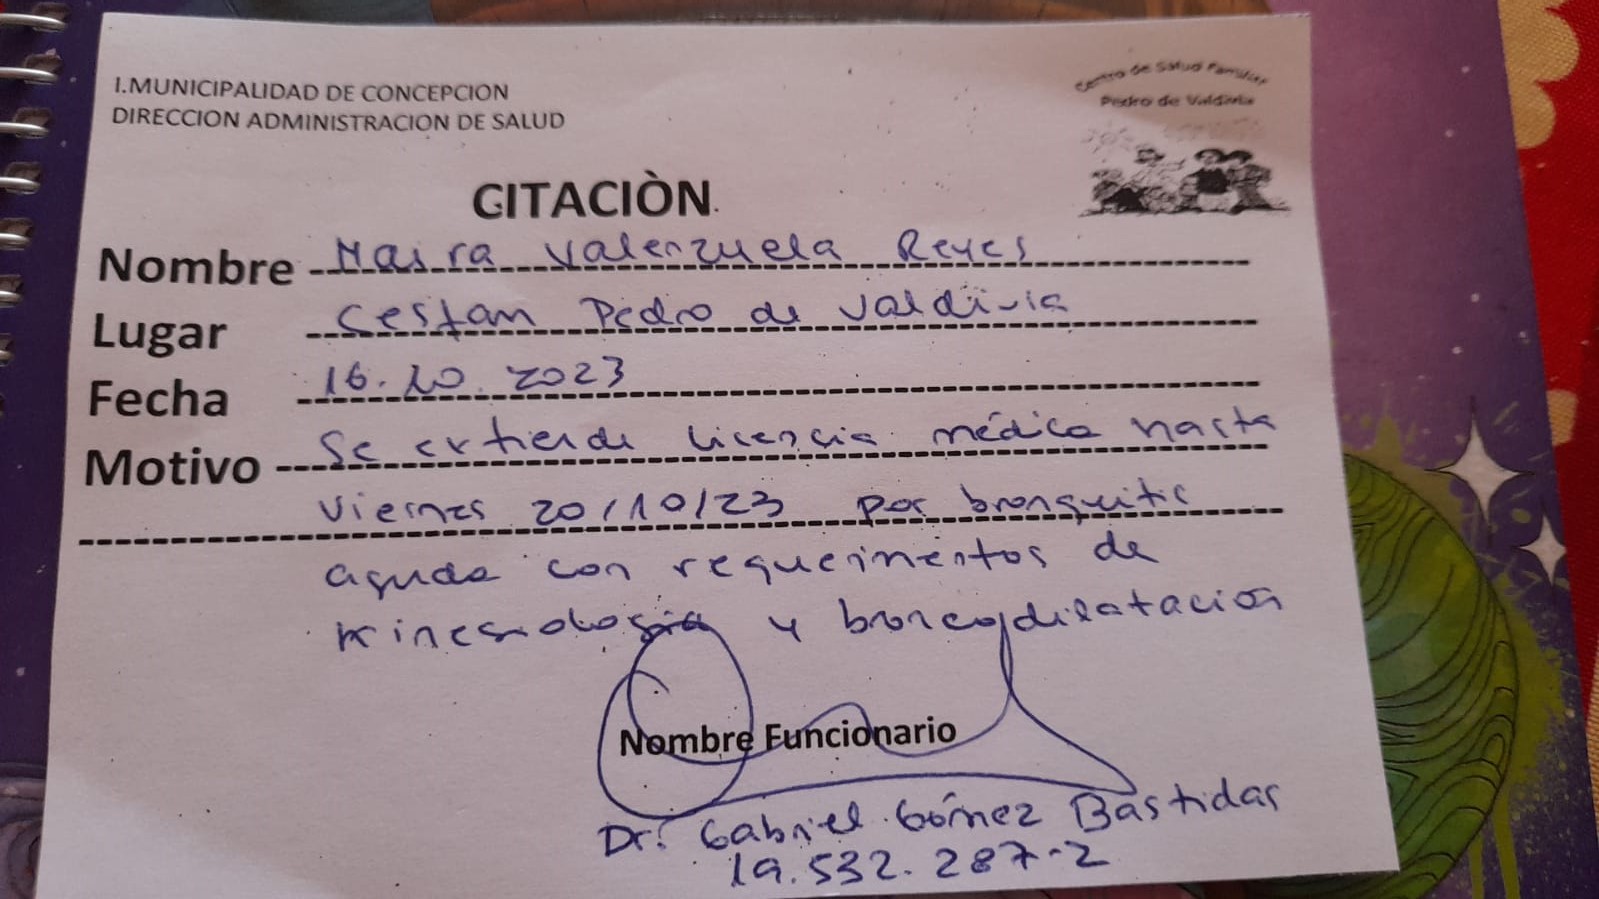 I.MUNICIPALIDAD DE CONCEPCION
DIRECCION ADMINISTRACION DE SALUD
Centro de Salud Familiar
Pedro de Valdivia
CITACIÒN.
Nombre Maira Valenzuela Reyes
Lugar Cesfam Pedro de Valdivia
Fecha 16.10.2023
Motivo Se extiende licencia médica hasta
viernes 20/10/23 por bronquitis
aguda con requerimentos de
kinesiologia y broncodilatación
Nombre Funcionario
Dr. Gabriel Gómez Bastidas
19.532.287-2